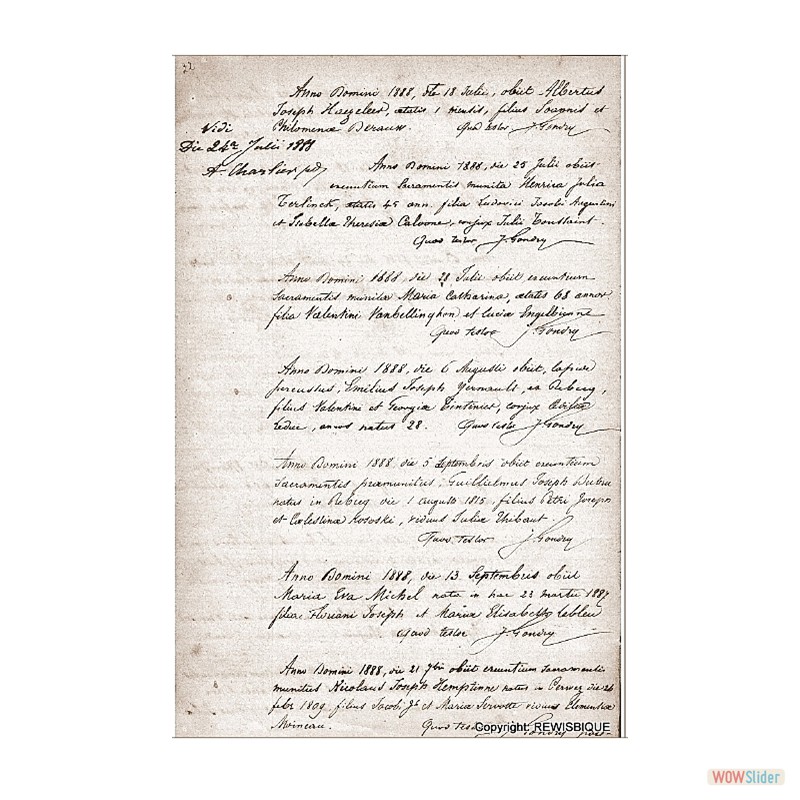 32
Anno Domini 1888, die 18 Julii, obiit Albertus
Joseph Haegeleer, ætatis 1 mensis, filius Joannis et
Philomenæ Deraux. Quod testor J. Gondry
Vidi
Die 24a Julii 1888
A. Charlier
Anno Domini 1888, die 25 Julii obiit
exeuntium Sacramentis munita Henrica Julia
Terlinck, ætatis 45 ann. filia Ludovici Jacobi Augustini
et Isabellæ Theresiæ Calvone, conjux Julii Toussaint.
Quod testor J. Gondry
Anno Domini 1888, die 28 Julii obiit exeuntium
Sacramentis munita Maria Catharina, ætatis 68 annor
filia Valentini Vanbellinghen et Luciæ Engelbienne
Quod testor J. Gondry
Anno Domini 1888, die 6 Augusti obiit, lapide
percussus, Emilius Joseph Yernault, ex Rebecq,
filius Valentini et Georgiæ Tintenier, conjux
Leduc, annos natus 28. Quod testor J. Gondry
Anno Domini 1888, die 5 Septembris obiit exeuntium
Sacramentis præmunitus, Guillielmus Joseph
natus in Rebecq die 1 augusti 1815, filius Petri Joseph
et Cælestinæ Kososki, viduus Juliæ Thibaut.
Quod testor J. Gondry
Anno Domini 1888, die 13 Septembris obiit
Maria Eva Michel nata in hac 23 martii 1887
filia Floriani Joseph et Mariæ Elisabeth Lebleu
Quod testor J. Gondry
Anno Domini 1888, die 21 7bris obiit exeuntium sacramentis
munitus Nicolaus Joseph Hemptinne natus in Perwez die 26
febr 1809 filius Jacobi Jh et Mariæ Servotte viduus Clementiæ
Moineau. Quod testor J. Gondry past.
Copyright: REWISBIQUE
WOWSlider